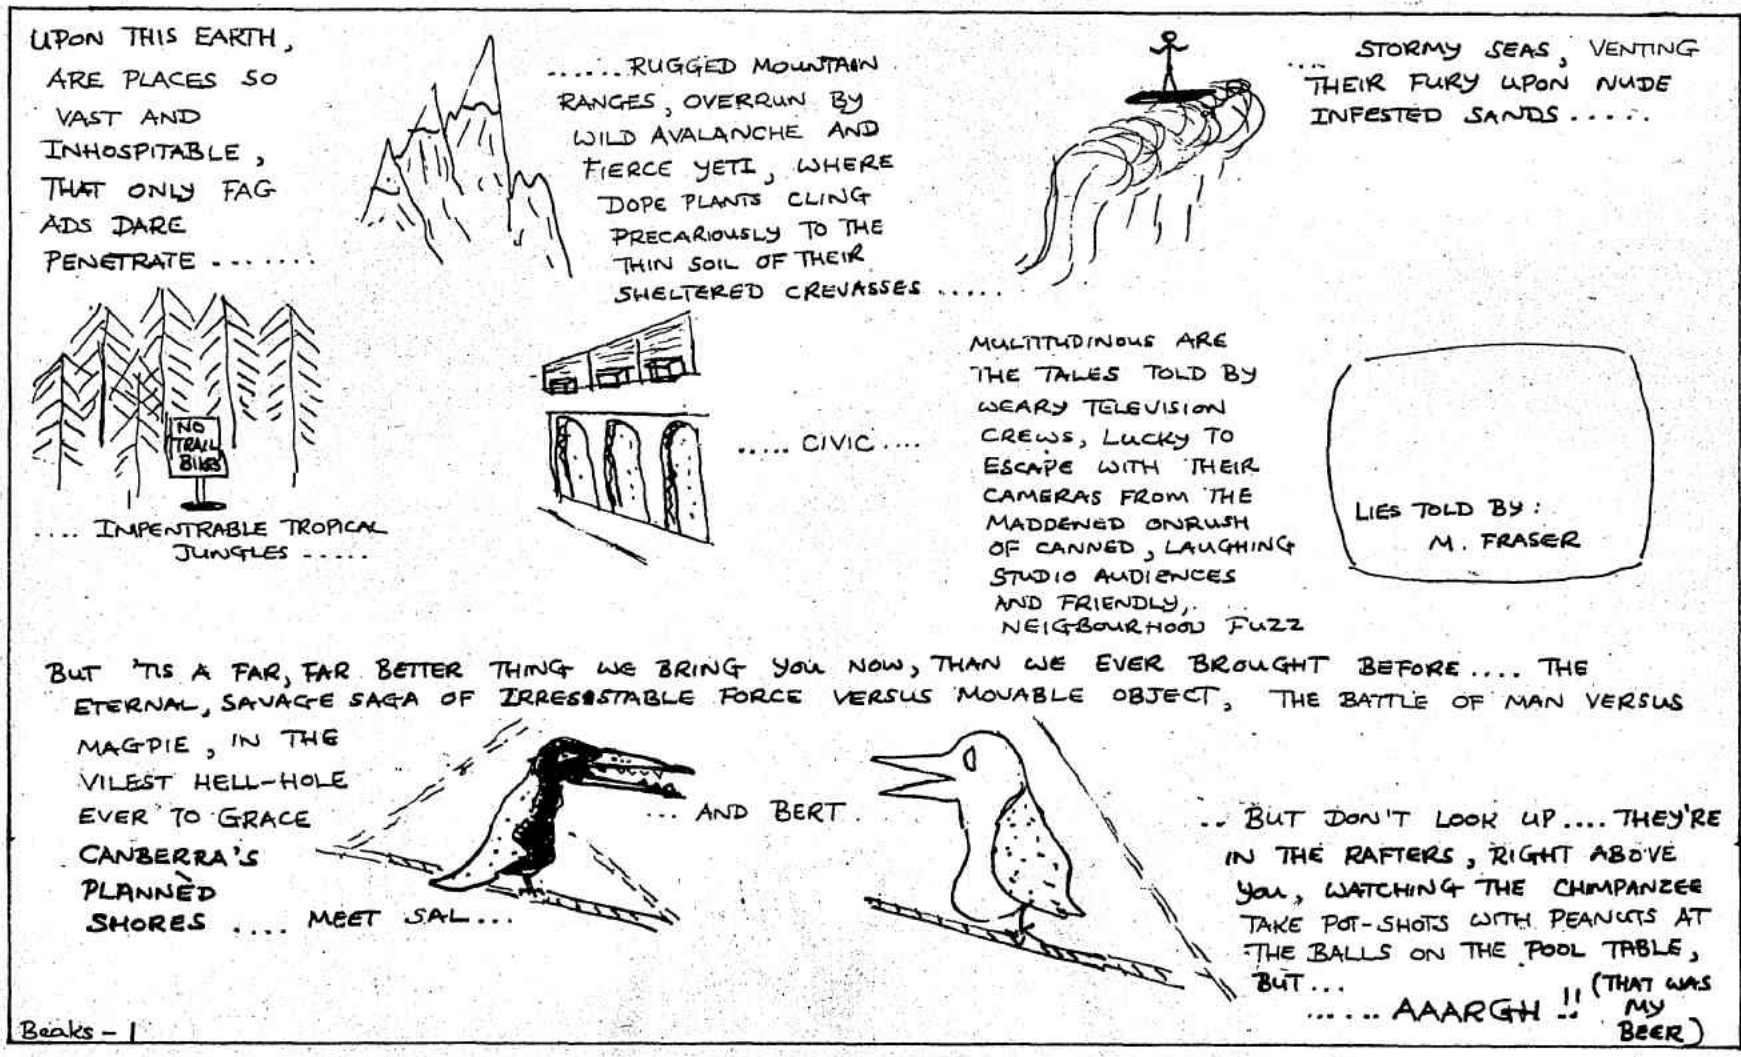 UPON THIS EARTH,
ARE PLACES SO
VAST AND
INHOSPITABLE,
THAT ONLY FAG
ADS DARE
PENETRATE .......
......RUGGED MOUNTAIN
RANGES, OVERRUN BY
WILD AVALANCHE AND
FIERCE YETI, WHERE
DOPE PLANTS CLING
PRECARIOUSLY TO THE
THIN SOIL OF THEIR
SHELTERED CREVASSES .....
.... STORMY SEAS, VENTING
THEIR FURY UPON NUDE
INFESTED SANDS .....
NO
TRAIL
BIKES
.... IMPENTRABLE TROPICAL
JUNGLES .....
..... CIVIC ....
MULTITUDINOUS ARE
THE TALES TOLD BY
WEARY TELEVISION
CREWS, LUCKY TO
ESCAPE WITH THEIR
CAMERAS FROM THE
MADDENED ONRUSH
OF CANNED, LAUGHING
STUDIO AUDIENCES
AND FRIENDLY,
NEIGBOURHOOD FUZZ
LIES TOLD BY:
M. FRASER
BUT 'TIS A FAR, FAR BETTER THING WE BRING YOU NOW, THAN WE EVER BROUGHT BEFORE.... THE
ETERNAL, SAVAGE SAGA OF IRRESISTABLE FORCE VERSUS MOVABLE OBJECT, THE BATTLE OF MAN VERSUS
MAGPIE, IN THE
VILEST HELL-HOLE
EVER TO GRACE
CANBERRA'S
PLANNED
SHORES .... MEET SAL...
... AND BERT.
.. BUT DON'T LOOK UP.... THEY'RE
IN THE RAFTERS, RIGHT ABOVE
YOU, WATCHING THE CHIMPANZEE
TAKE POT-SHOTS WITH PEANUTS AT
THE BALLS ON THE POOL TABLE,
BUT...
...... AAARGH !! (THAT WAS
MY
BEER)
Beaks - 1